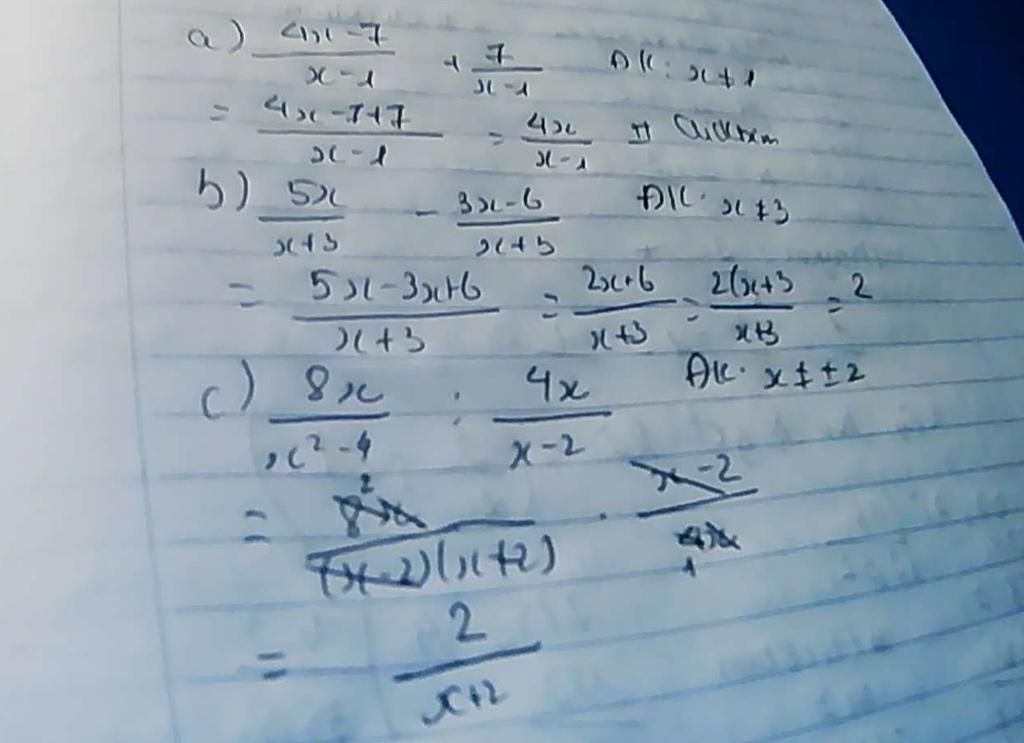 a) (4x-7)/(x-1) + 7/(x-1) ĐK: x ≠ 1
= (4x-7+7)/(x-1) = 4x/(x-1)
b) 5x/(x+3) - (3x-6)/(x+3) ĐK: x ≠ 3
= (5x-3x+6)/(x+3) = (2x+6)/(x+3) = 2(x+3/(x+3) = 2
c) 8x/(x²-4) : 4x/(x-2) ĐK: x ≠ ±2
= 8x/((x-2)(x+2)) . (x-2)/4x
= 2/(x+2)